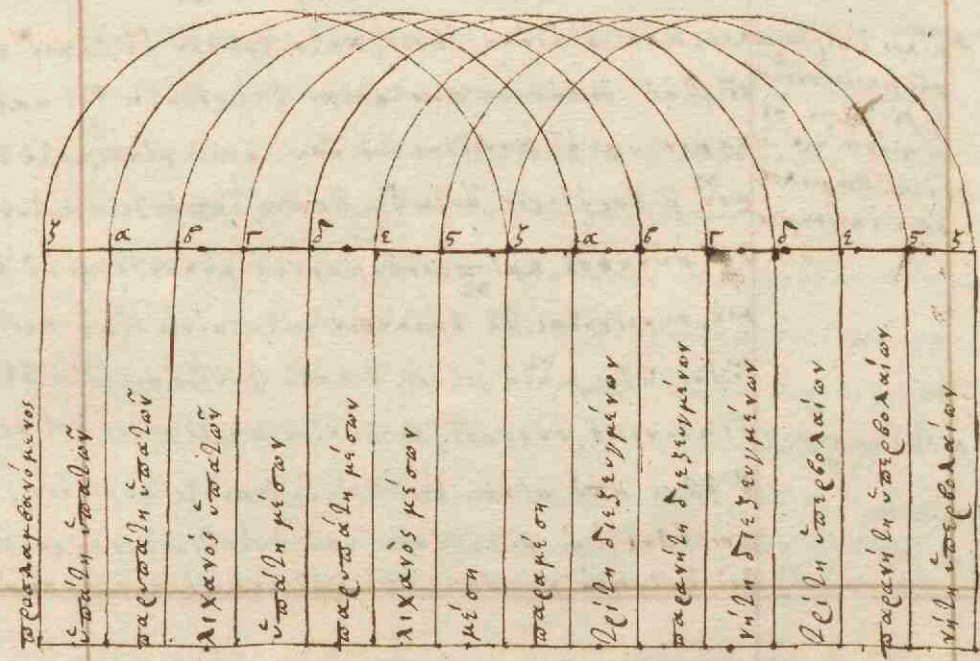 ζ α β γ δ ε ς ζ α β γ δ ε ς ζ
προσλαμβανόμενος
ὑπάτη ὑπατῶν
παρυπάτη ὑπατῶν
λιχανὸς ὑπατῶν
ὑπάτη μέσων
παρυπάτη μέσων
λιχανὸς μέσων
μέση
παραμέση
τρίτη διεζευγμένων
παρανήτη διεζευγμένων
νήτη διεζευγμένων
τρίτη ὑπερβολαίων
παρανήτη ὑπερβολαίων
νήτη ὑπερβολαίων